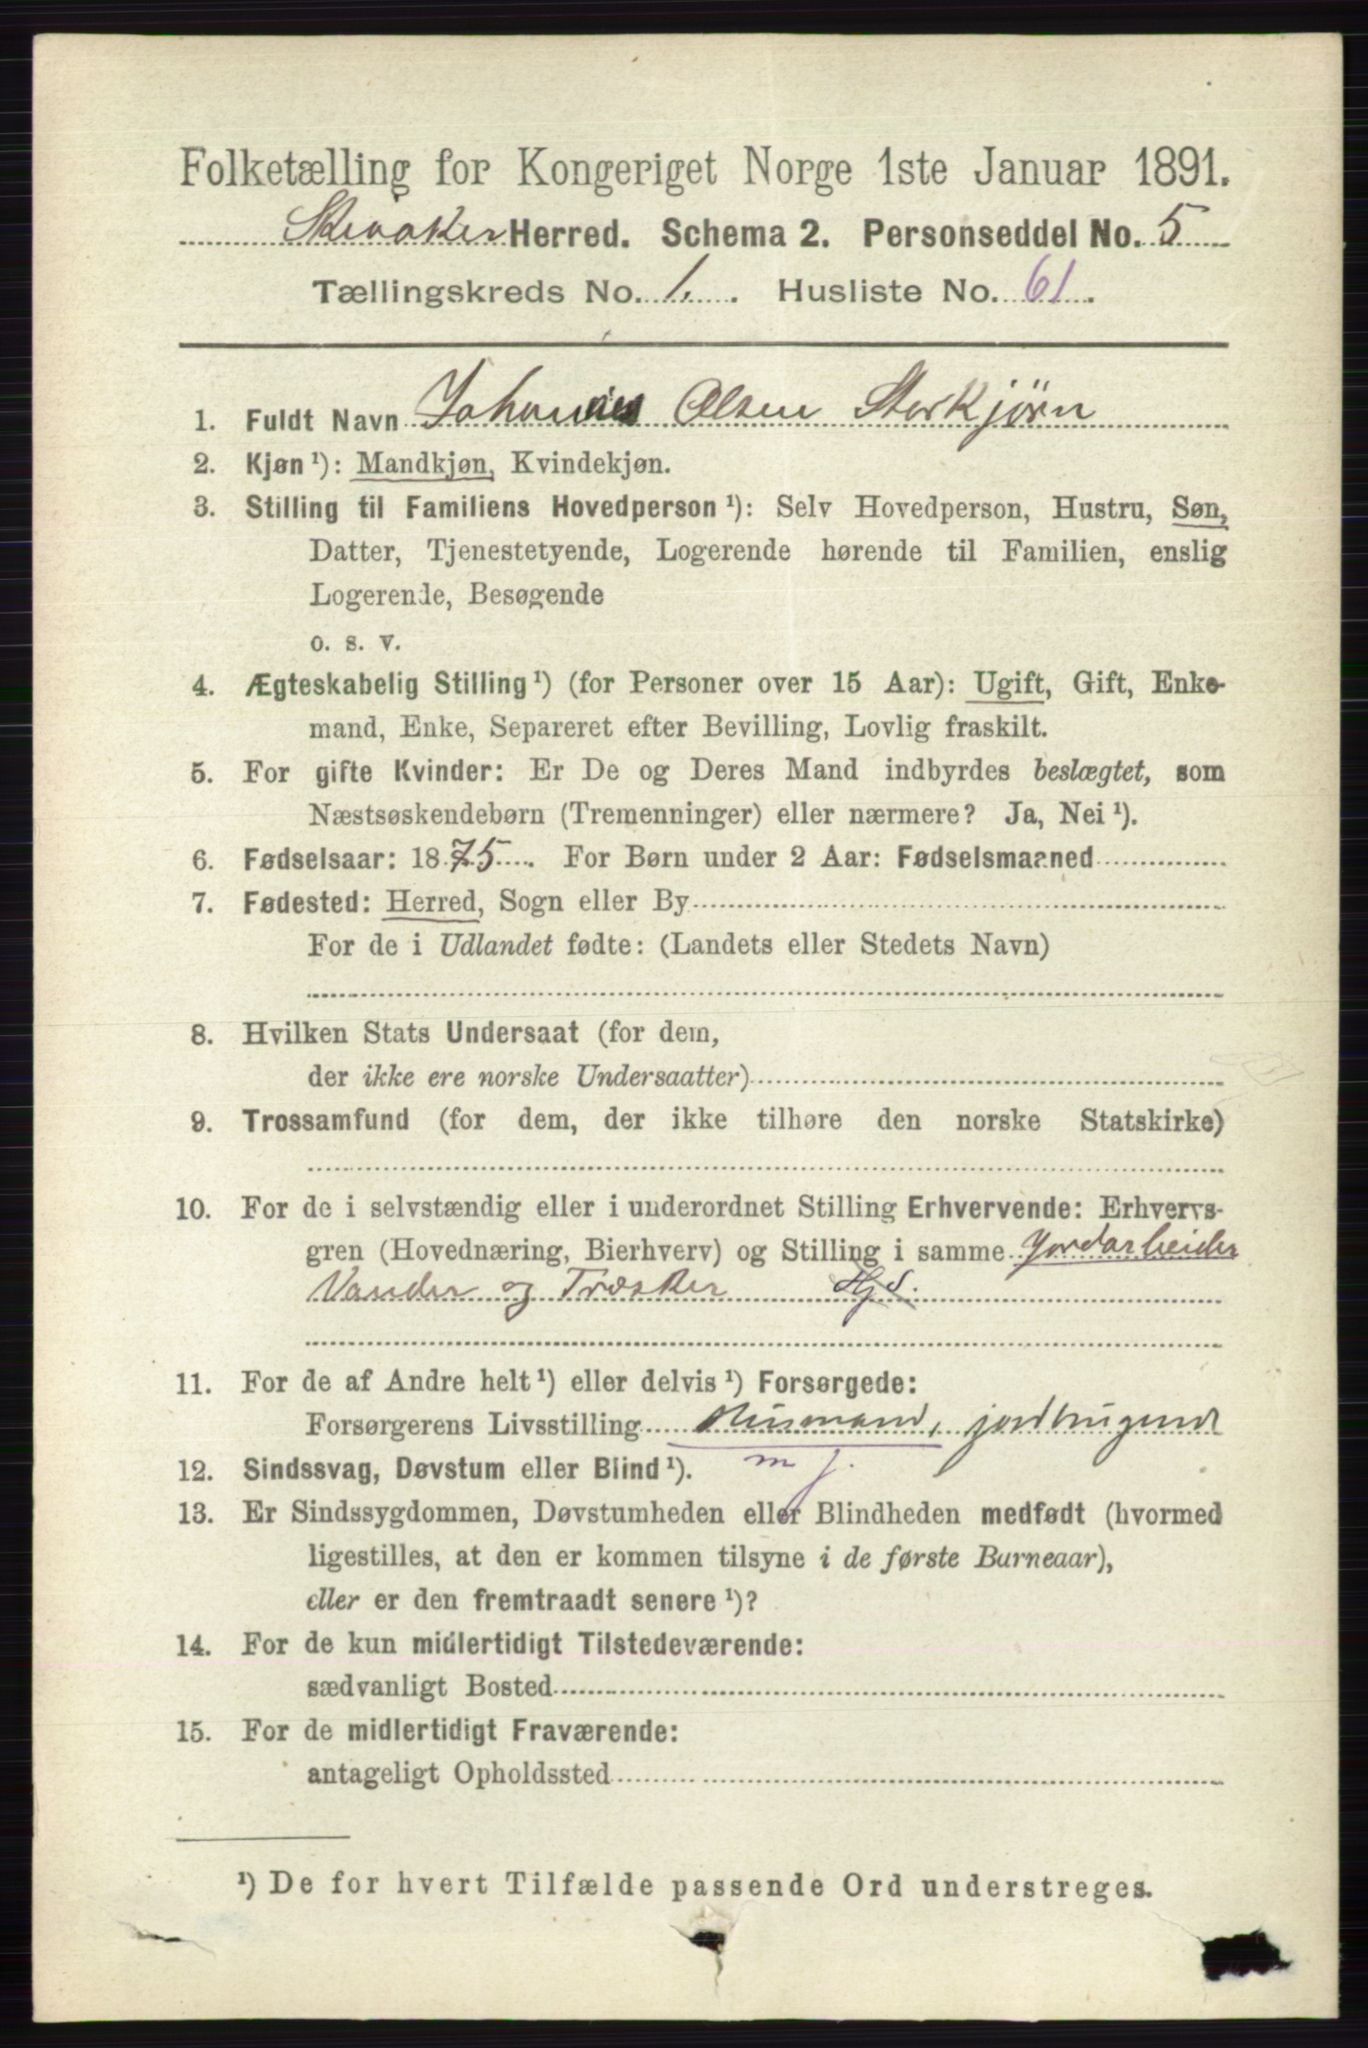 Folketælling for Kongeriget Norge 1ste Januar 1891.
Skiaaker Herred. Schema 2. Personseddel No. 5
Tællingskreds No. 1. Husliste No. 61.
1. Fuldt Navn Johannes Olsen Storkjørn
2. Kjøn ¹): Mandkjøn, Kvindekjøn.
3. Stilling til Familiens Hovedperson ¹): Selv Hovedperson, Hustru, Søn,
Datter, Tjenestetyende, Logerende hørende til Familien, enslig
Logerende, Besøgende
o. s. v.
4. Ægteskabelig Stilling ¹) (for Personer over 15 Aar): Ugift, Gift, Enke-
mand, Enke, Separeret efter Bevilling, Lovlig fraskilt.
5. For gifte Kvinder: Er De og Deres Mand indbyrdes beslægtet, som
Næstsøskendebørn (Tremenninger) eller nærmere? Ja, Nei ¹).
6. Fødselsaar: 1875. For Børn under 2 Aar: Fødselsmaaned
7. Fødested: Herred, Sogn eller By
For de i Udlandet fødte: (Landets eller Stedets Navn)
8. Hvilken Stats Undersaat (for dem,
der ikke ere norske Undersaatter)
9. Trossamfund (for dem, der ikke tilhøre den norske Statskirke)
10. For de i selvstændig eller i underordnet Stilling Erhvervende: Erhvervs-
gren (Hovednæring, Bierhverv) og Stilling i samme Jordarbeider
Vander og Træsker Hjs.
11. For de af Andre helt ¹) eller delvis ¹) Forsørgede:
Forsørgerens Livsstilling Husmand, jordbrugende
m j.
12. Sindssvag, Døvstum eller Blind ¹).
13. Er Sindssygdommen, Døvstumheden eller Blindheden medfødt (hvormed
ligestilles, at den er kommen tilsyne i de første Barneaar),
eller er den fremtraadt senere ¹)?
14. For de kun midlertidigt Tilstedeværende:
sædvanligt Bosted
15. For de midlertidigt Fraværende:
antageligt Opholdssted
¹) De for hvert Tilfælde passende Ord understreges.